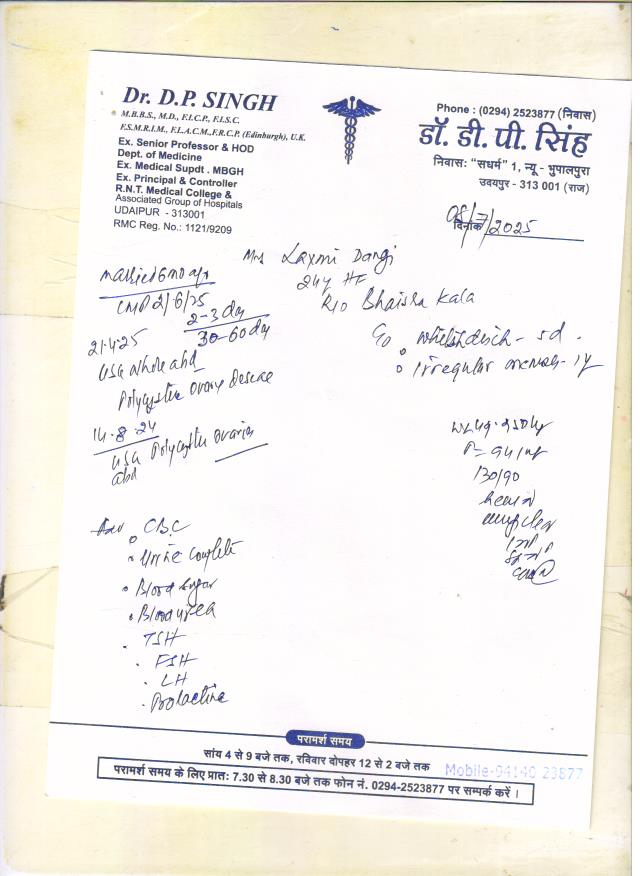 Dr. D.P. SINGH
M.B.B.S., M.D., F.I.C.P., F.I.S.C.
F.S.M.R.I.M., F.I.A.C.M., F.R.C.P. (Edinburgh), U.K.
Ex. Senior Professor & HOD
Dept. of Medicine
Ex. Medical Supdt . MBGH
Ex. Principal & Controller
R.N.T. Medical College &
Associated Group of Hospitals
UDAIPUR - 313001
RMC Reg. No.: 1121/9209
Phone : (0294) 2523877 (निवास)
डॉ. डी. पी. सिंह
निवास: "सधर्म" 1, न्यू - भुपालपुरा
उदयपुर - 313 001 (राज)
दिनांक 08/7/2025
Mrs Laxmi Dangi
24y HF
R/o Bhaisra Kala
married 6 mo
LMP 2/6/25
2-3 day
30-60 day
21.4.25
USG whole abd
Polycystic Ovary Disease
14.8.24
USG Polycystic Ovaries
abd
C/o whitish disch - sd.
Irregular menses - 1y
P = 94/mt
130/90
CBC
Urine Complete
Blood sugar
Blood urea
TSH
FSH
LH
Prolactine
परामर्श समय
सांय 4 से 9 बजे तक, रविवार दोपहर 12 से 2 बजे तक
Mobile-94140 23877
परामर्श समय के लिए प्रात: 7.30 से 8.30 बजे तक फोन नं. 0294-2523877 पर सम्पर्क करें ।